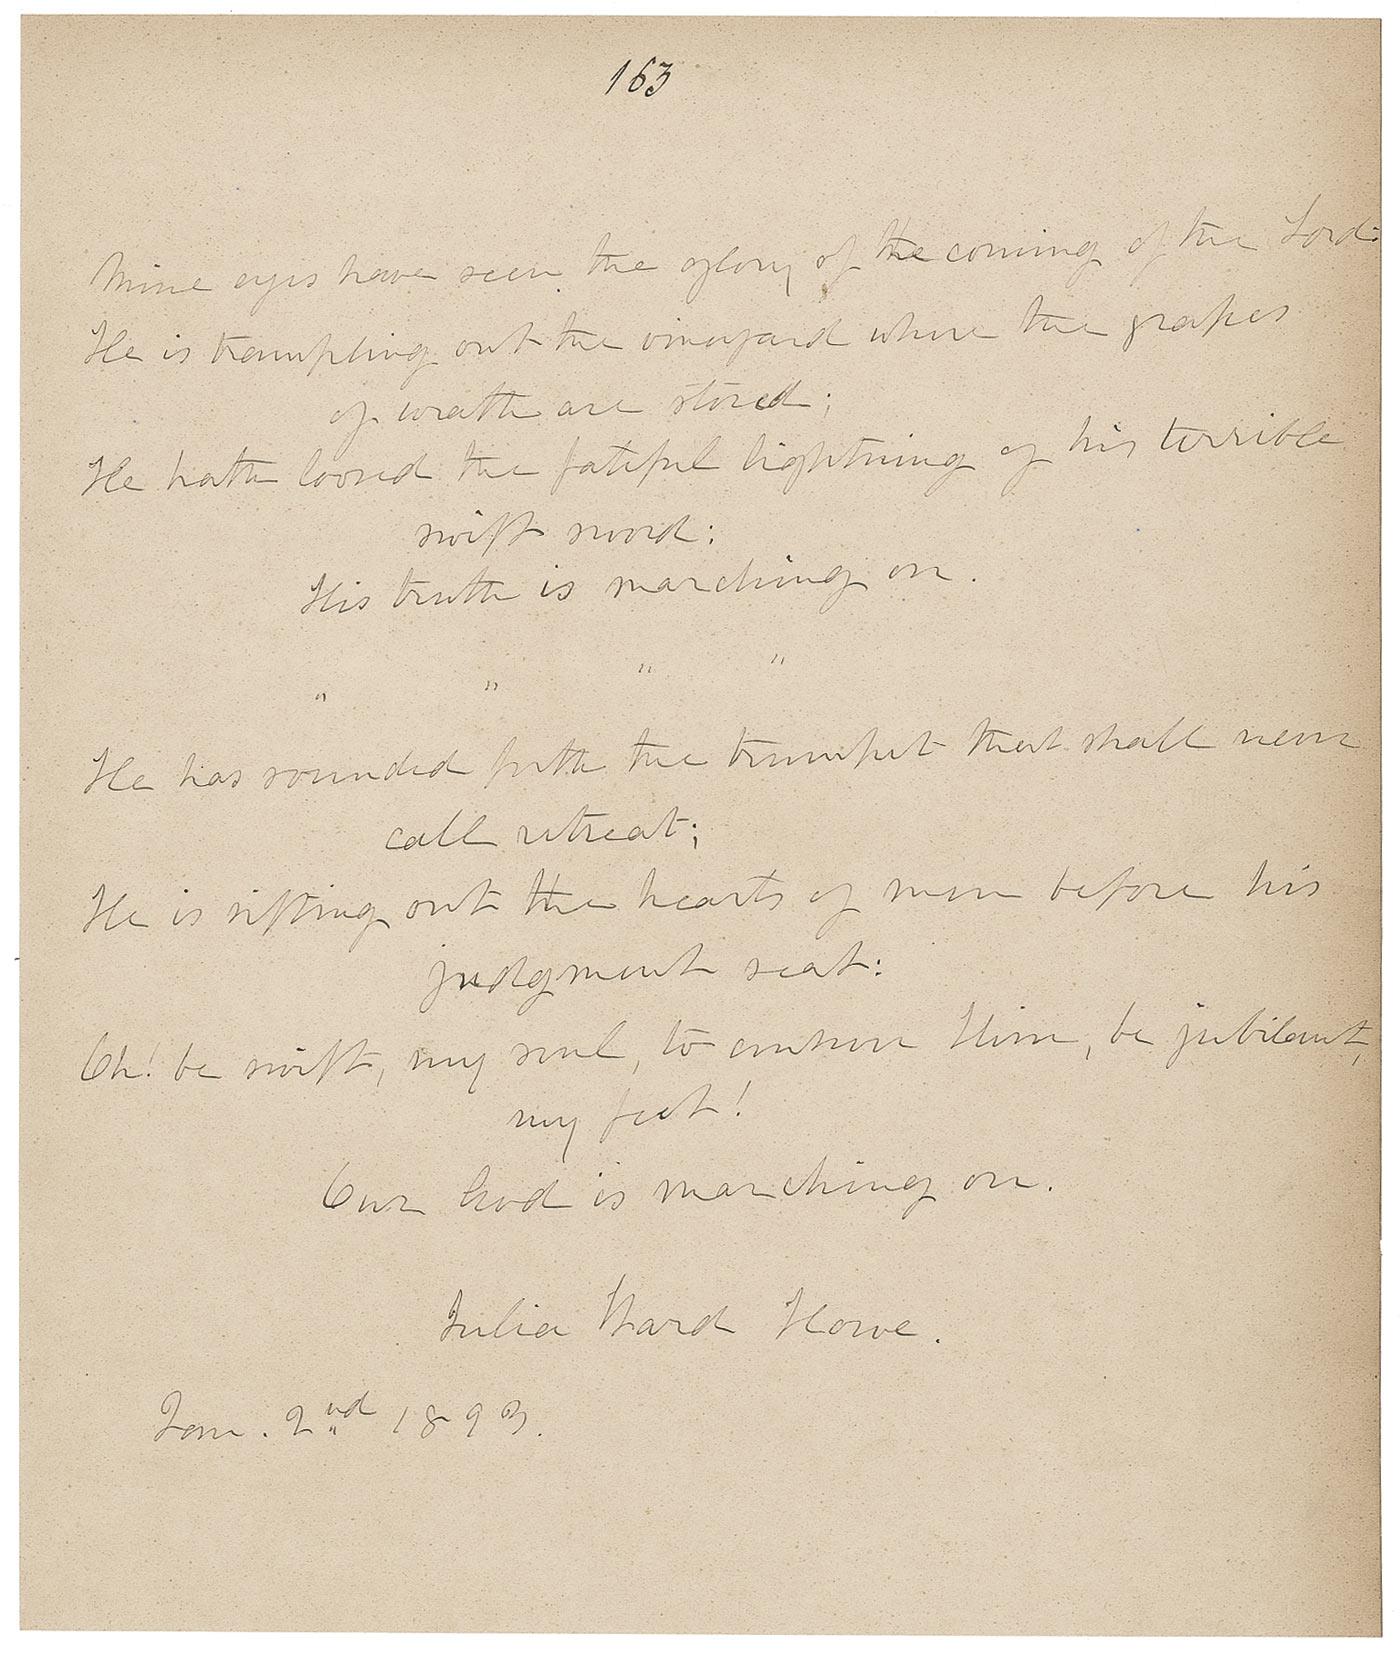 163
Mine eyes have seen the glory of the coming of the Lord:
He is trampling out the vineyard where the grapes
of wrath are stored;
He hath loosed the fateful lightning of his terrible
swift sword:
His truth is marching on.
" " " "
He has sounded forth the trumpet that shall never
call retreat;
He is sifting out the hearts of men before his
judgment seat:
Oh! be swift, my soul, to answer Him, be jubilant,
my feet!
Our God is marching on.
Julia Ward Howe.
Jan. 2nd 1893.